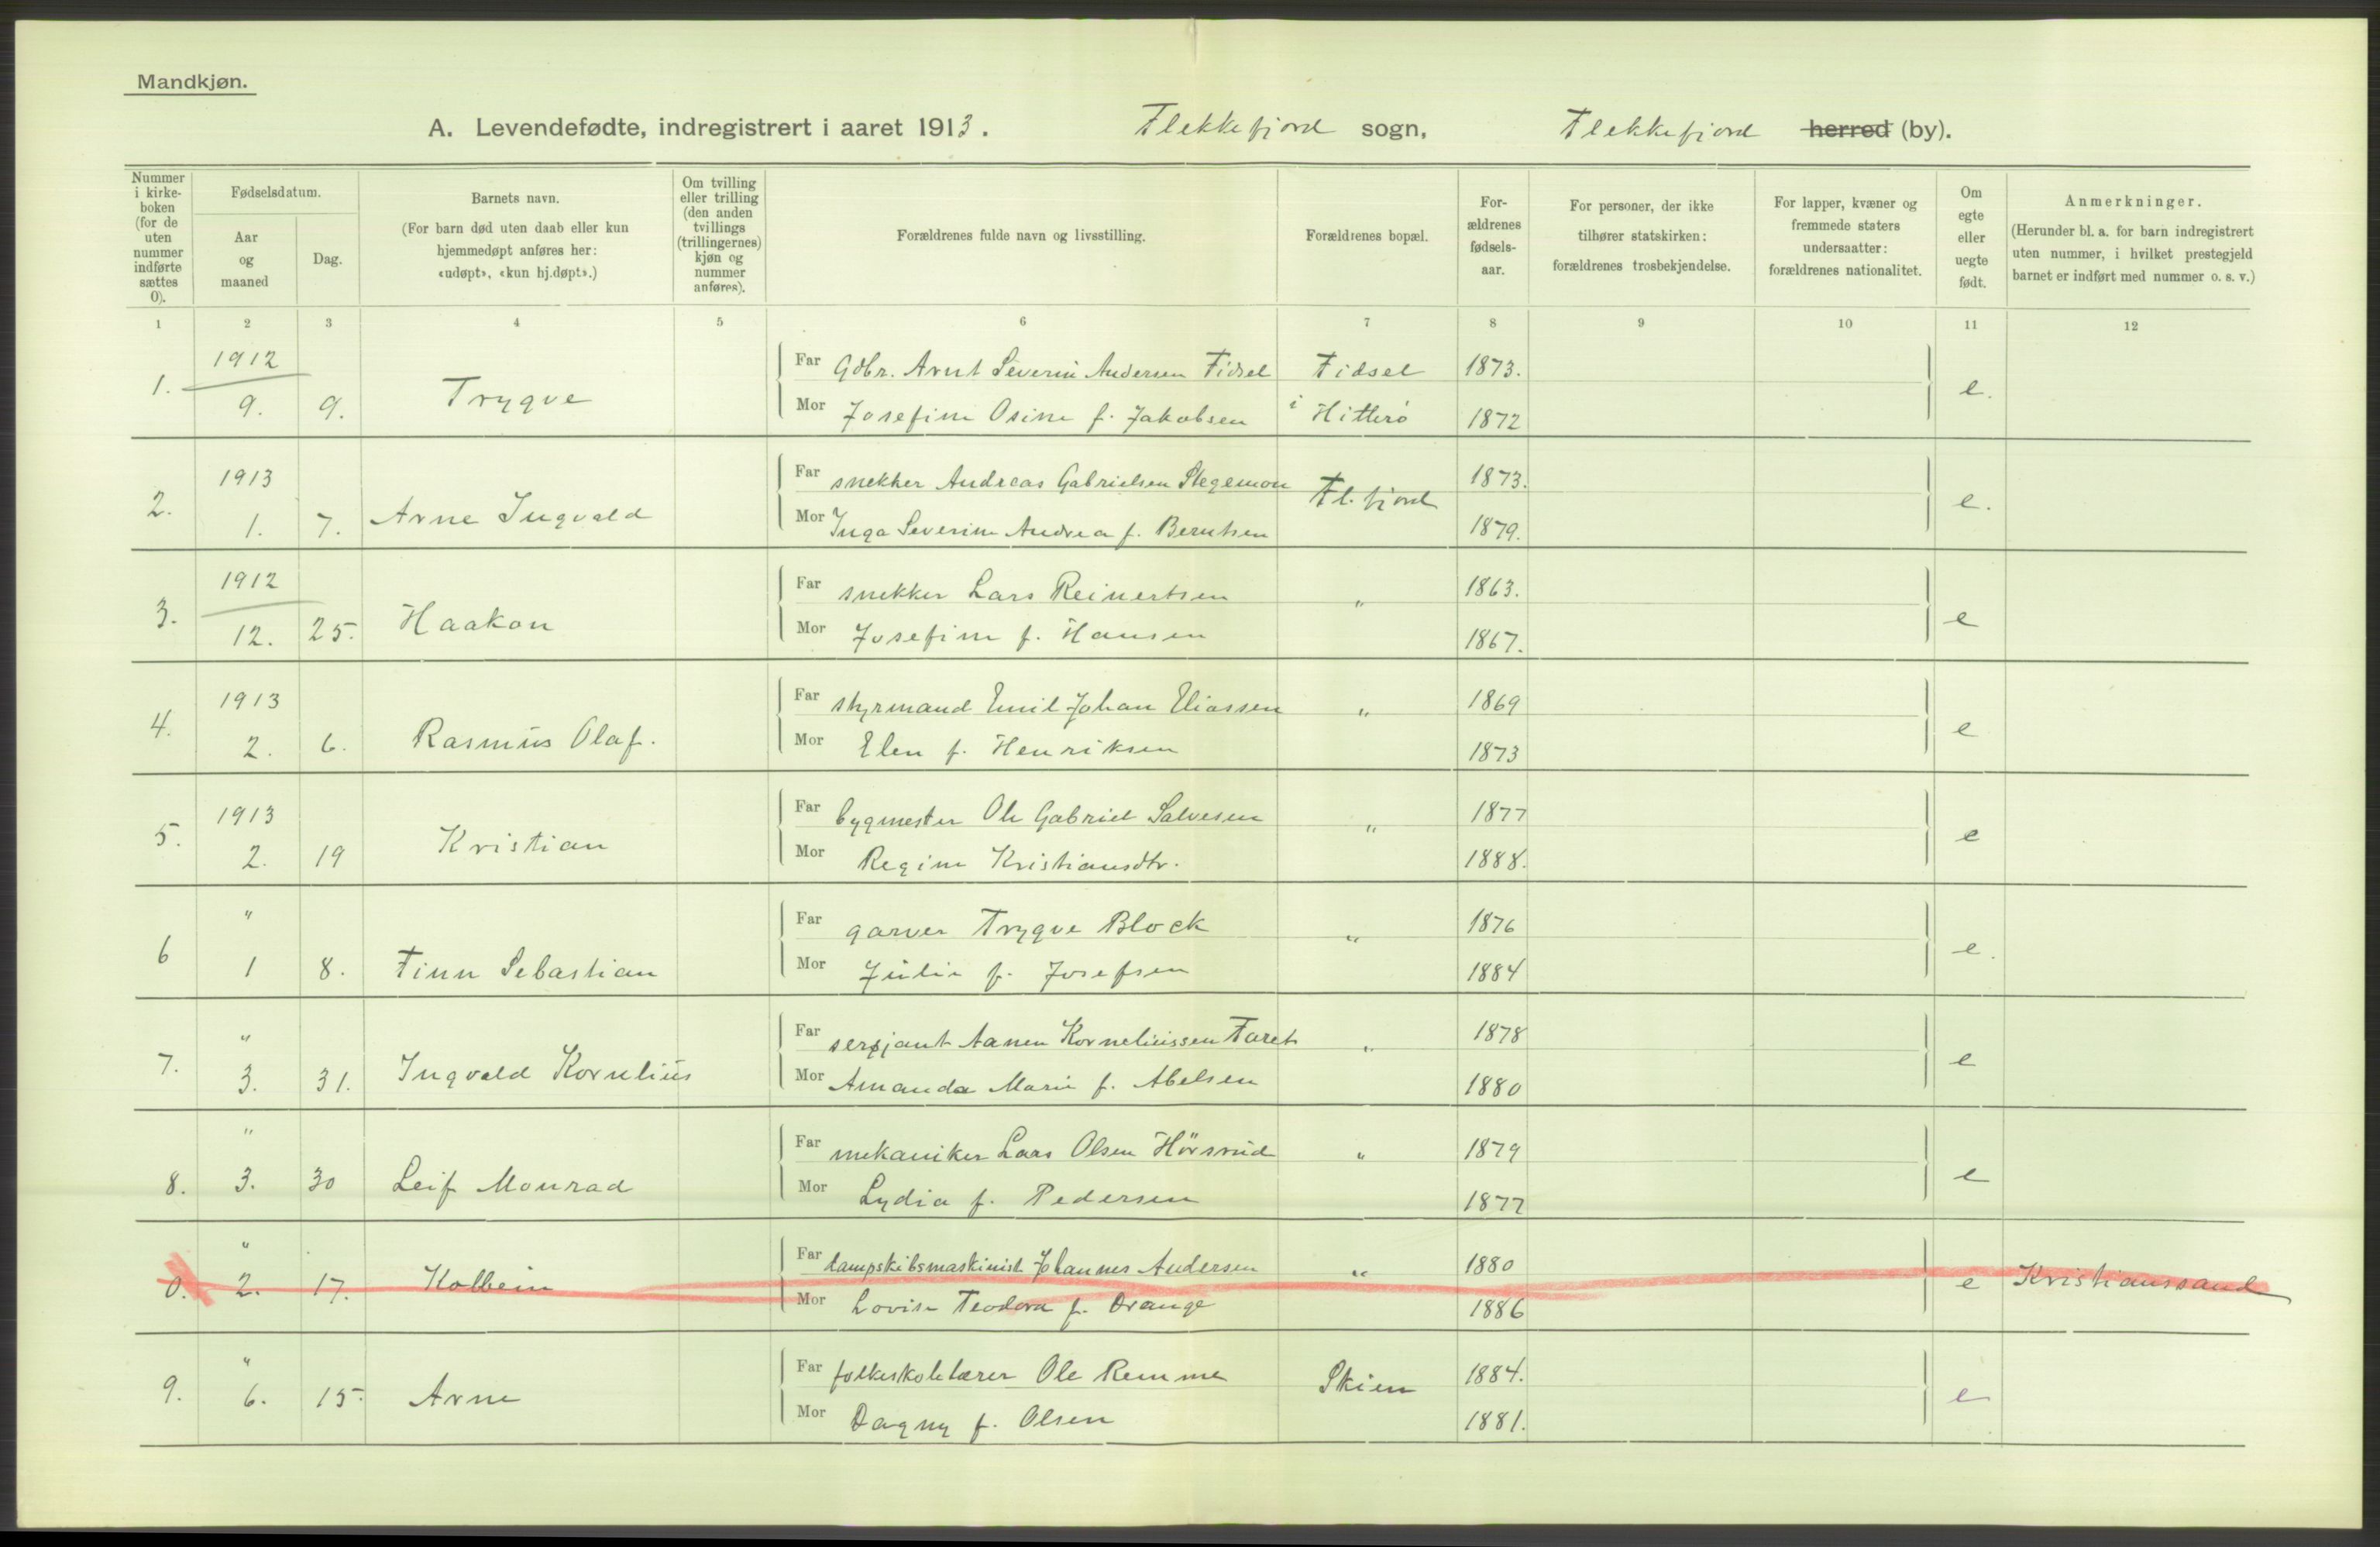 Mandkjøn.
A. Levendefødte, indregistrert i aaret 1913. Flekkefjord sogn, Flekkefjord herred (by).
Nummer i kirke-boken (for de uten nummer indførte sættes 0).
Fødselsdatum.
Aar og maaned
Dag.
Barnets navn.
(For barn død uten daab eller kun hjemmedøpt anføres her: «udøpt», «kun hj.døpt».)
Om tvilling eller trilling (den anden tvillings (trillingernes) kjøn og nummer anføres).
Forældrenes fulde navn og livsstilling.
Forældrenes bopæl.
For-ældrenes fødsels-aar.
For personer, der ikke tilhører statskirken: forældrenes trosbekjendelse.
For lapper, kvæner og fremmede staters undersaatter: forældrenes nationalitet.
Om egte eller uegte født.
Anmerkninger.
(Herunder bl. a. for barn indregistrert uten nummer, i hvilket prestegjeld barnet er indført med nummer o. s. v.)
1 2 3 4 5 6 7 8 9 10 11 12
1912 Far Gdbr. Arnt Severin Andersen Fidsel Fidsel 1873.
1. 9. 9. Trygve e.
Mor Josefine Osine f. Jakobsen i Hitterö 1872
1913 Far snekker Andreas Gabrielsen Stegemon Fl. fjord 1873.
2. 1. 7. Arne Ingvald e.
Mor Inga Severine Andrea f. Berntsen 1879.
1912 Far snekker Lars Reinertsen " 1863.
3. 12. 25. Haakon e
Mor Josefine f. Hansen 1867.
1913 Far styrmand Emil Johan Eliassen " 1869
4. 2. 6. Rasmus Olaf. e
Mor Elen f. Henriksen 1873
1913 Far bygmester Ole Gabriel Salvesen " 1877
5. 2. 19 Kristian e
Mor Regine Kristiansdtr. 1888.
" Far garver Trygve Block " 1876
6 1 8. Finn Sebastian e.
Mor Julie f. Josefsen 1884
" Far sersjant Aanen Korneliussen Faret " 1878
7. 3. 31. Ingvald Kornelius e
Mor Amanda Marie f. Abelsen 1880
" Far mekaniker Laas Olsen Hörsrud " 1879
8. 3. 30 Leif Monrad e
Mor Lydia f. Pedersen 1877
" Far dampskibsmaskinist Johannes Andersen " 1880
0. 2. 17. Kolbein e Kristianssand
Mor Lovise Teodora f. Drange 1886
" Far folkeskolelærer Ole Remme Skien 1884.
9. 6. 15. Arne e
Mor Dagny f. Olsen 1881.